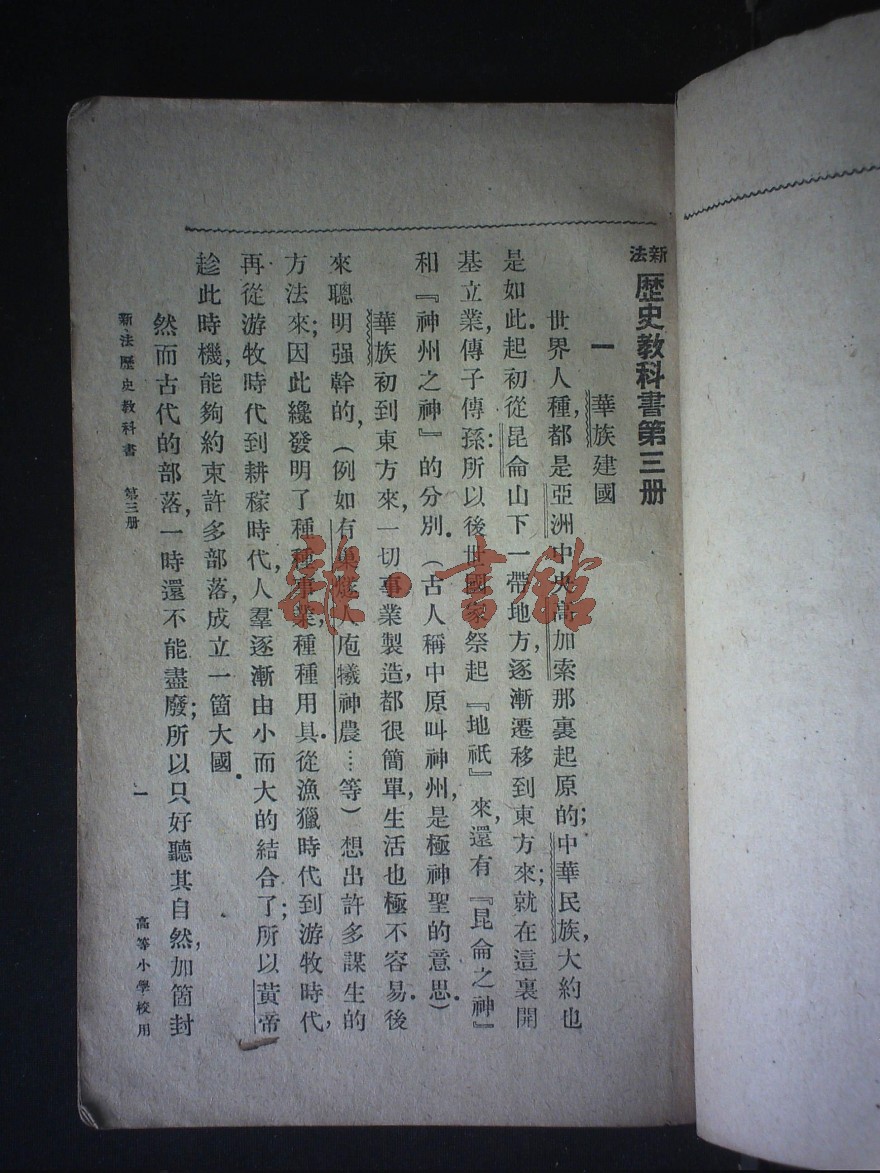 新法歷史教科書第三册
一 華族建國
世界人種，都是亞洲中央高加索那裏起原的；中華民族，大約也
是如此。起初從昆侖山下一帶地方，逐漸遷移到東方來；就在這裏開
基立業，傳子傳孫：所以後世國家祭起『地祇』來，還有『昆侖之神』
和『神州之神』的分別。（古人稱中原叫神州，是極神聖的意思。）
華族初到東方來，一切事業製造，都很簡單，生活也極不容易，後
來聰明强幹的，（例如有巢燧人庖犧神農…等）想出許多謀生的
方法來；因此纔發明了種種事業，種種用具。從漁獵時代到游牧時代，
再從游牧時代到耕稼時代，人羣逐漸由小而大的結合了；所以黃帝
趁此時機，能夠約束許多部落，成立一箇大國。
然而古代的部落，一時還不能盡廢；所以只好聽其自然，加箇封
新法歷史教科書 第三册
一
高等小學校用
雜·書館